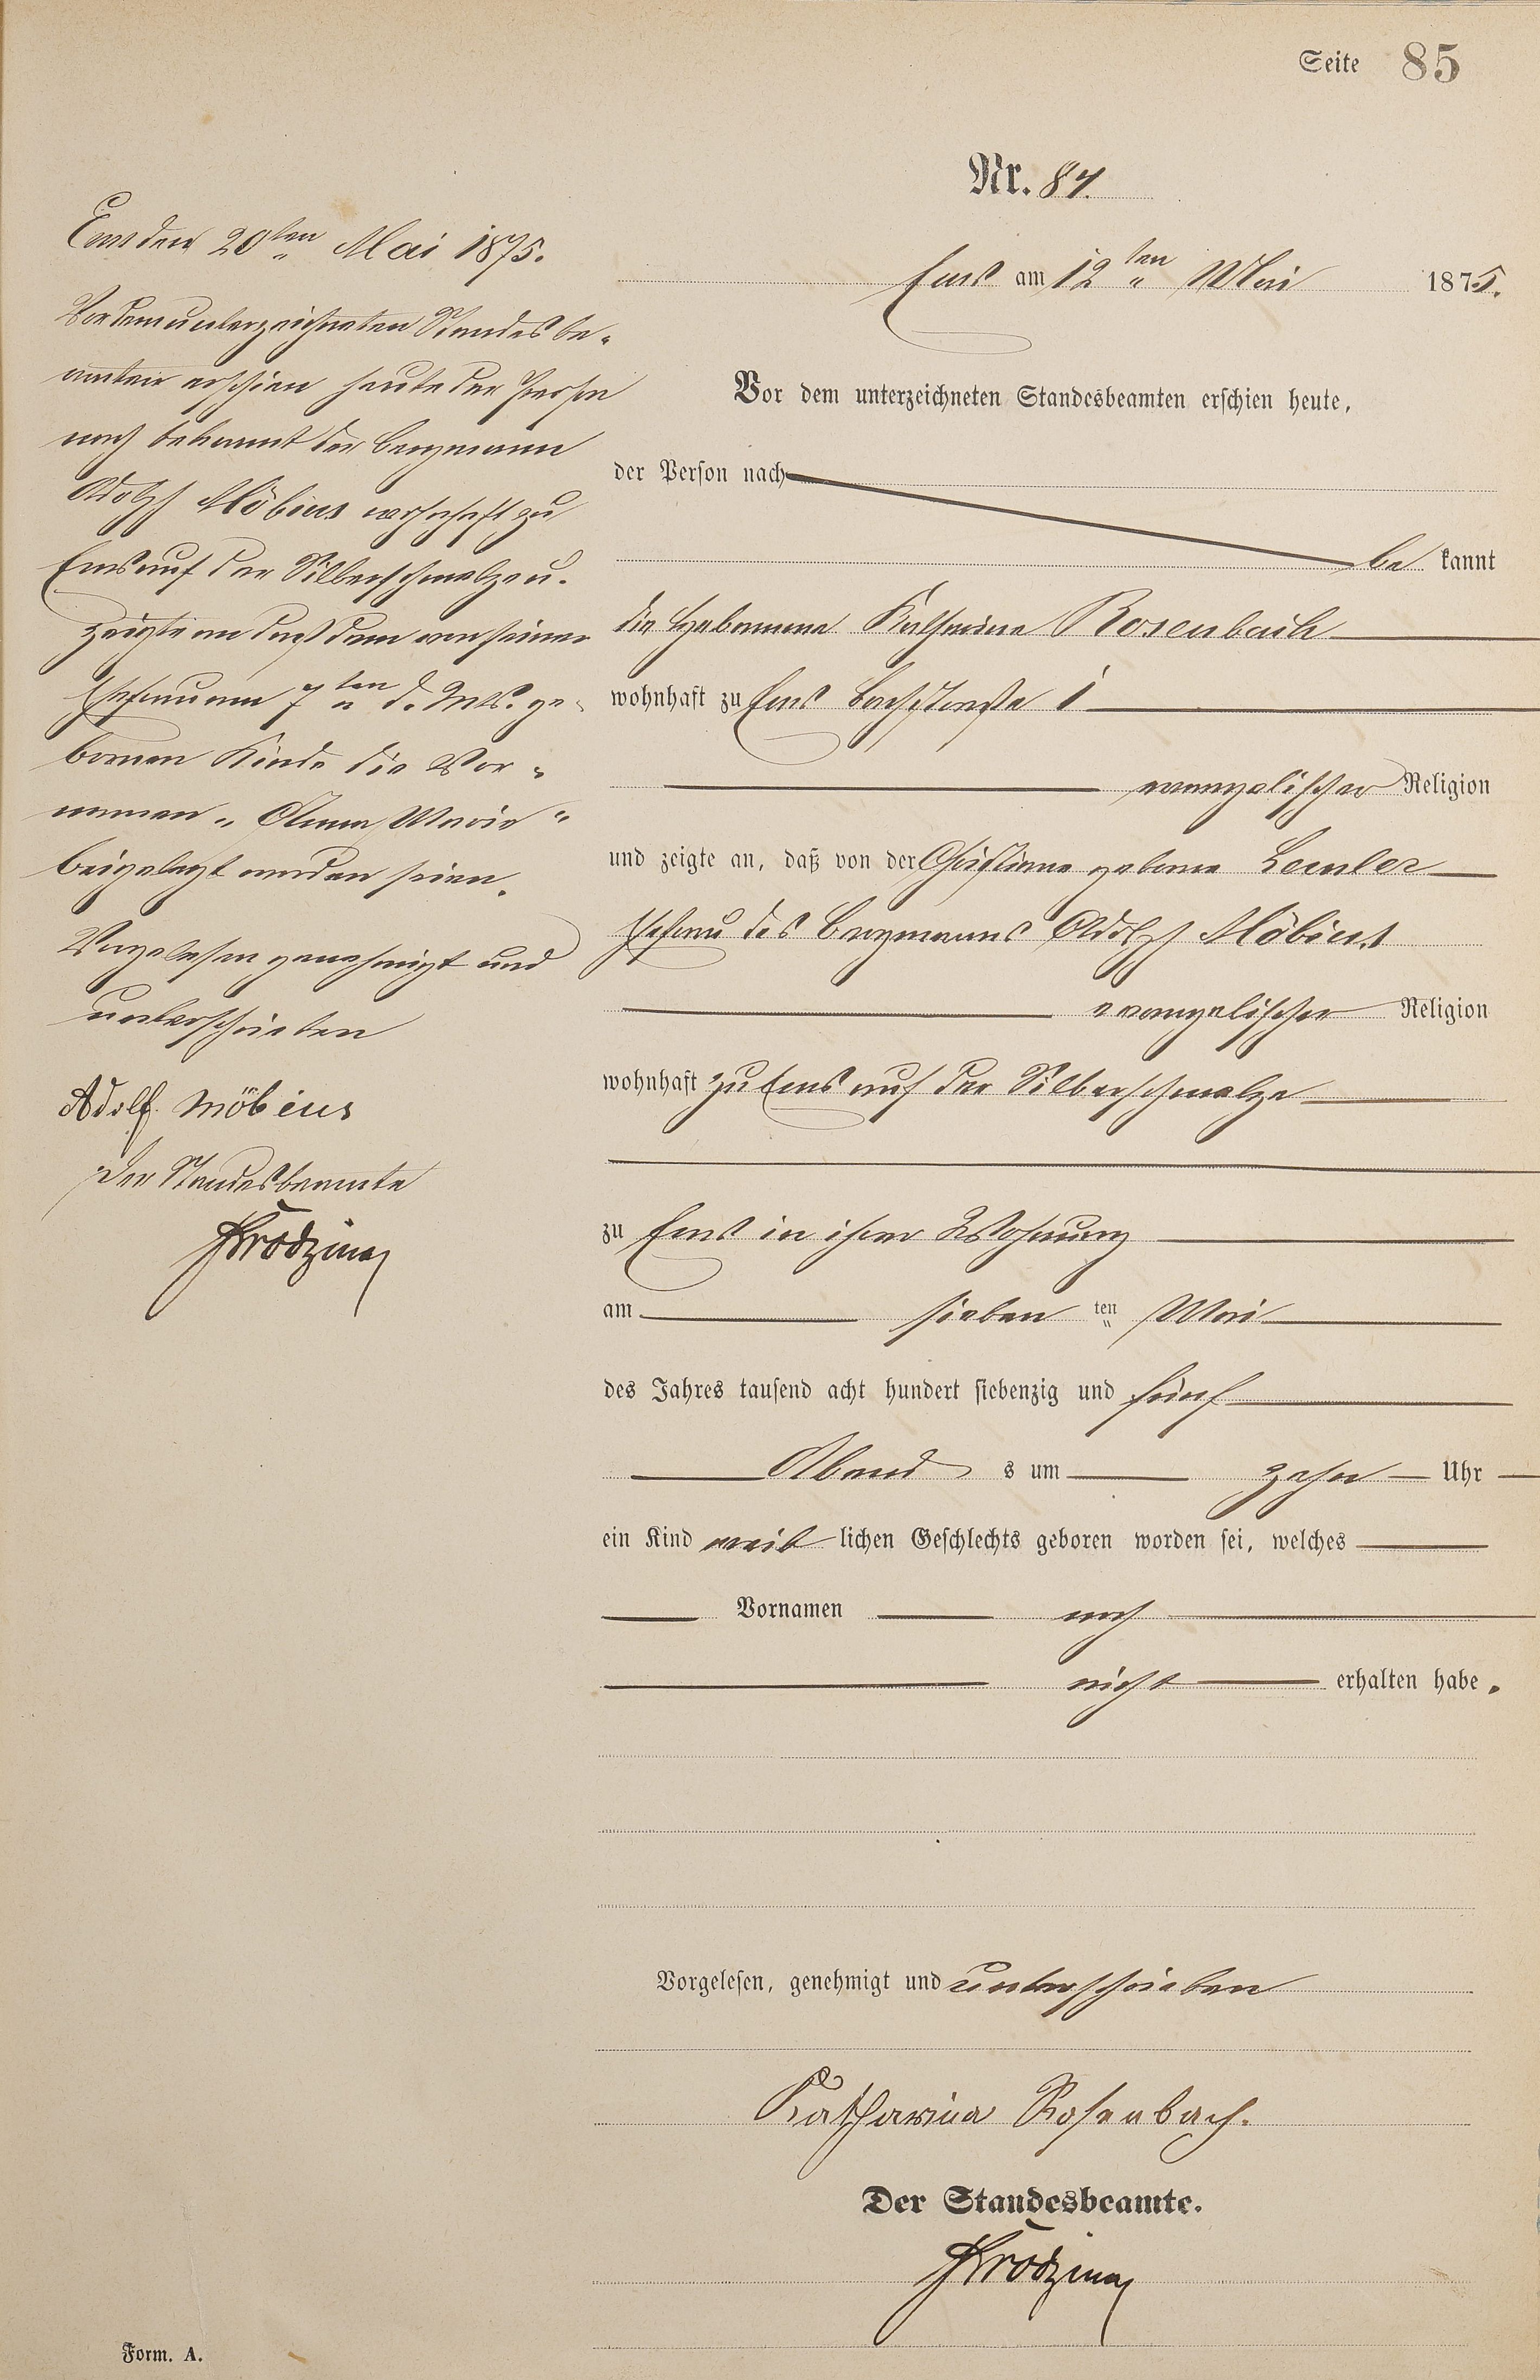 Seite 85
Nr. 84.
Ems am 12ten Mai 1875.
Vor dem unterzeichneten Standesbeamten erschien heute,
der Person nach
be kannt
die Hebamme Katharina Rosenbach
wohnhaft zu Ems Bachstraße 1
evangelischer Religion
und zeigte an, daß von der Christiane geborne Lemler
Ehefrau des Bergmanns Adolph Möbius
evangelischer Religion
wohnhaft zu Ems auf der Silberschmelze
zu Ems in ihrer Wohnung
am sieben ten Mai
des Jahres tausend acht hundert siebenzig und fünf
Abend s um zehn Uhr
ein Kind weib lichen Geschlechts geboren worden sei, welches
Vornamen noch
nicht erhalten habe.
Vorgelesen, genehmigt und unterschrieben
Katharina Rosenbach.
Der Standesbeamte.
Ems den 20ten Mai 1875.
Vor dem unterzeichneten Standesbe-
amten erschien heute der Person
nach bekannt der Bergmann
Adolph Möbius wohnhaft zu
Ems auf der Silberschmelze u.
zeigte an daß dem von seiner
Ehefrau am 7ten d. Mts. ge-
bornen Kinde die Vor-
namen "Anna Marie"
beigelegt worden seien.
Vorgelesen genehmigt und
unterschrieben
Adolf Möbius
Der Standesbeamte
Form. A.